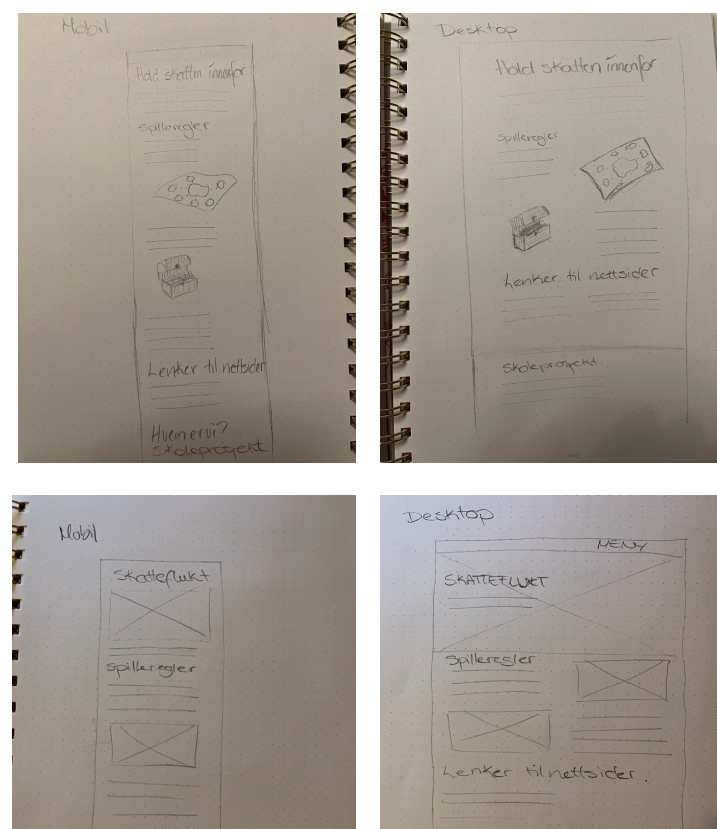 Mobil
Hold skatten innenfor
Spilleregler
Lenker til nettsider
Hvem er vi?
Skoleprosjekt
Desktop
Hold skatten innenfor
Spilleregler
Lenker til nettsider
Skoleprosjekt
Mobil
Skatteflukt
Spilleregler
Desktop
MENY
SKATTEFLUKT
Spilleregler
Lenker til nettsider.